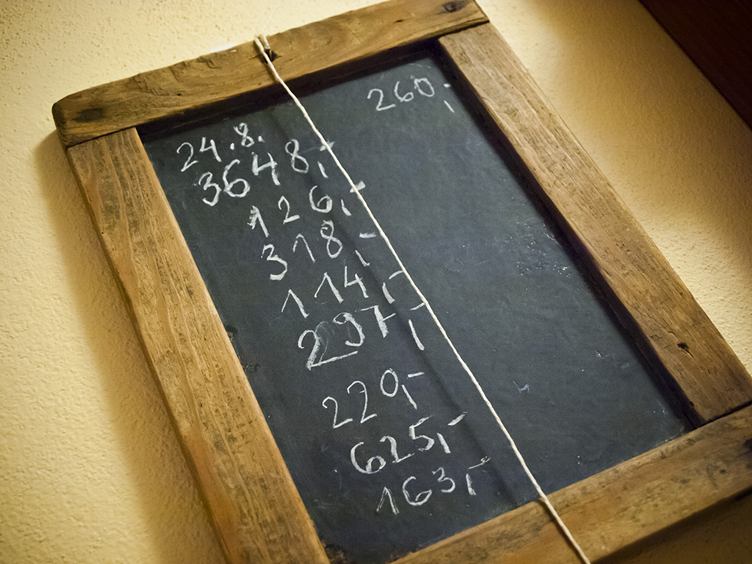 260,-
24.8.
3648,-
126,-
318,-
114,-
297,-
220,-
625,-
163,-